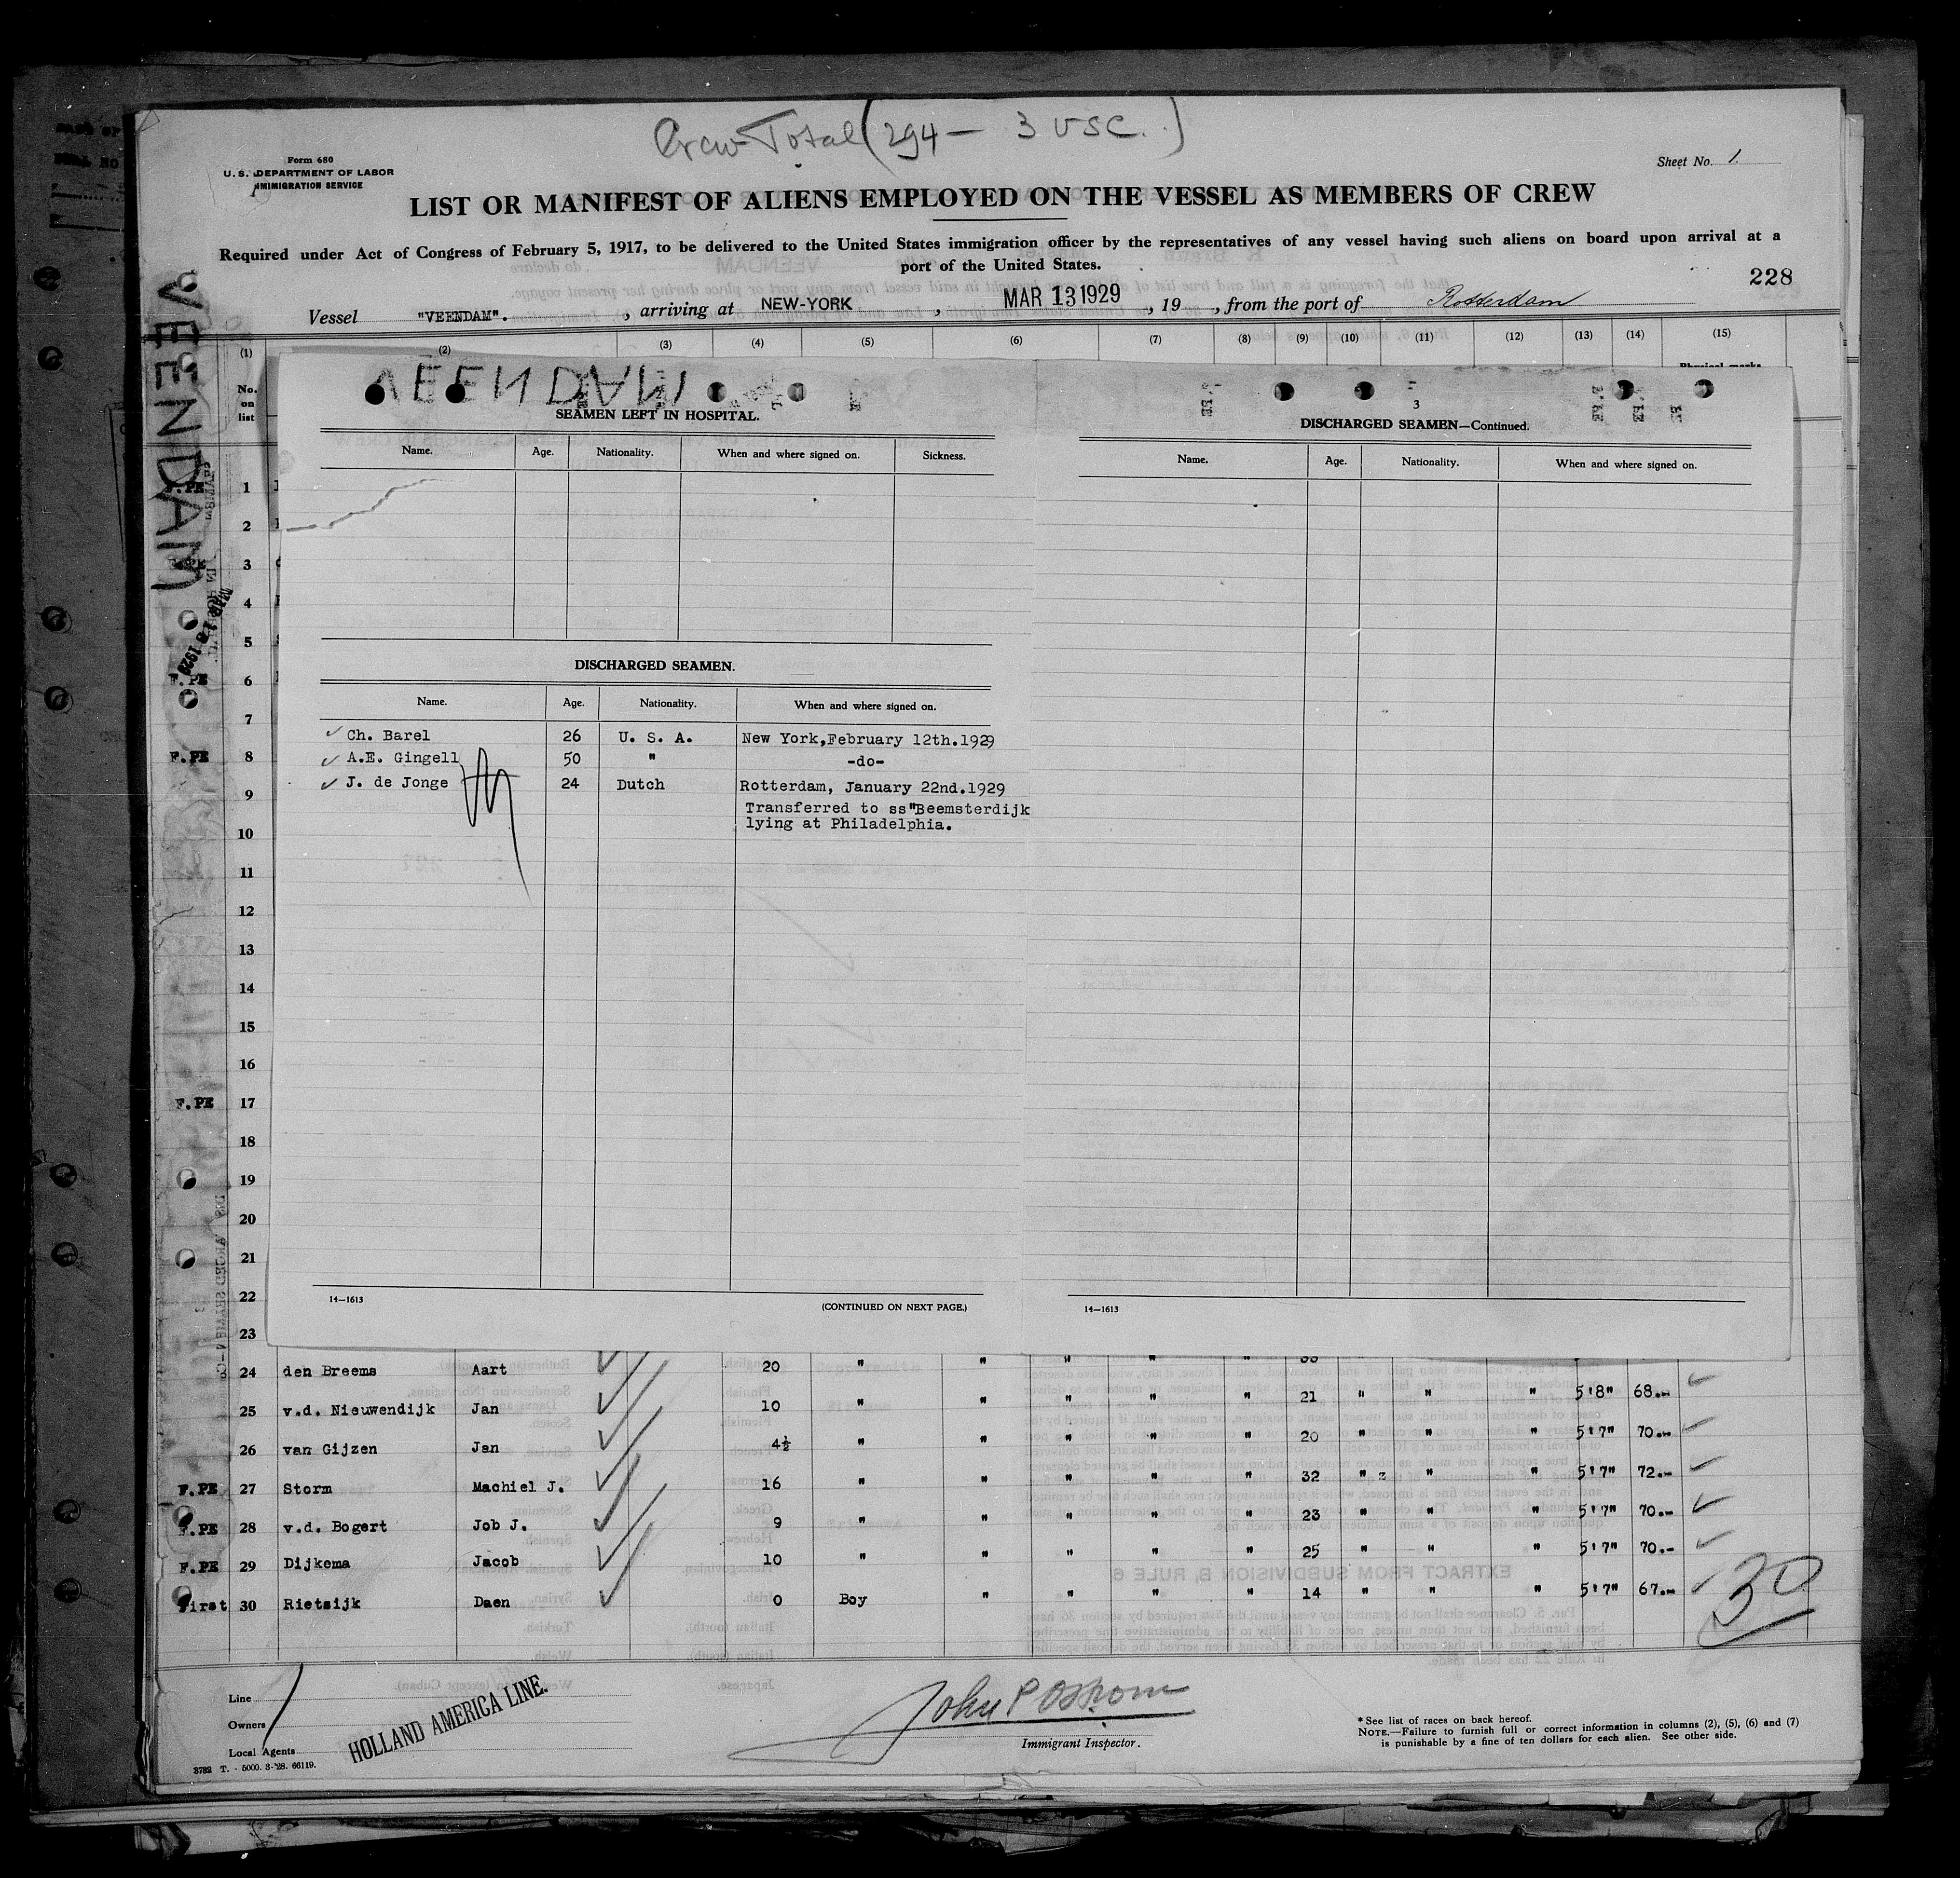 Crew Total (294 - 3 USC.)
Form 680
U. S. DEPARTMENT OF LABOR
IMMIGRATION SERVICE
Sheet No. 1
LIST OR MANIFEST OF ALIENS EMPLOYED ON THE VESSEL AS MEMBERS OF CREW
Required under Act of Congress of February 5, 1917, to be delivered to the United States immigration officer by the representatives of any vessel having such aliens on board upon arrival at a
port of the United States.
228
Vessel "VEENDAM". , arriving at NEW-YORK , MAR 13 1929 , 19 , from the port of Rotterdam
(1) (2) (3) (4) (5) (6) (7) (8) (9) (10) (11) (12) (13) (14) (15)
No.
on
list
VEENDAM
VEENDAM
MAR 13 1929
SEAMEN LEFT IN HOSPITAL.
Name. Age. Nationality. When and where signed on. Sickness.
DISCHARGED SEAMEN.
Name. Age. Nationality. When and where signed on.
Ch. Barel 26 U. S. A. New York,February 12th.1929
A.E. Gingell 50 " -do-
J. de Jonge 24 Dutch Rotterdam, January 22nd.1929
Transferred to ss"Beemsterdijk
lying at Philadelphia.
14—1613 (CONTINUED ON NEXT PAGE.)
3
DISCHARGED SEAMEN—Continued.
Name. Age. Nationality. When and where signed on.
14—1613
F.PE 1
2
3
4
5
F.PE 6
7
F.PE 8
9
10
11
12
13
14
15
16
F.PE 17
18
19
20
21
22
23
24 den Breems Aart 20 " " " " "
25 v.d. Nieuwendijk Jan 10 " " " " " 21 " " " 5'8" 68.-
26 van Gijzen Jan 4½ " " " " " 20 " " " 5'7" 70.-
F.PE 27 Storm Machiel J. 16 " " " " " 32 " " " 5'7" 72.-
F.PE 28 v.d. Bogert Job J. 9 " " " " " 23 " " " 5'7" 70.-
F.PE 29 Dijkema Jacob 10 " " " " " 25 " " " 5'7" 70.-
First 30 Rietsijk Daen 0 Boy " " " " 14 " " " 5'7" 67.-
30
Line
Owners
Local Agents
HOLLAND AMERICA LINE.
3782 T. - 5000. 3-'28. 66119.
John P Osborne
Immigrant Inspector.
* See list of races on back hereof.
NOTE.—Failure to furnish full or correct information in columns (2), (5), (6) and (7)
is punishable by a fine of ten dollars for each alien. See other side.